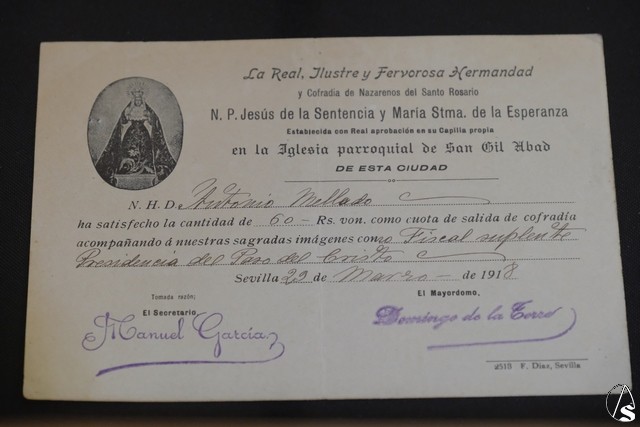 La Real, Ilustre y Fervorosa Hermandad
y Cofradía de Nazarenos del Santo Rosario
N. P. Jesús de la Sentencia y María Stma. de la Esperanza
Establecida con Real aprobación en su Capilla propia
en la Iglesia parroquial de San Gil Abad
DE ESTA CIUDAD
N. H. D. Antonio Mellado
ha satisfecho la cantidad de 60 Rs. von. como cuota de salida de cofradía
acompañando á nuestras sagradas imágenes como Fiscal suplente
Presidencia del Paso del Cristo
Sevilla 29 de Marzo de 1918
Tomada razón;
El Secretario,
Manuel García
El Mayordomo,
Domingo de la Torre
2513 F. Díaz, Sevilla